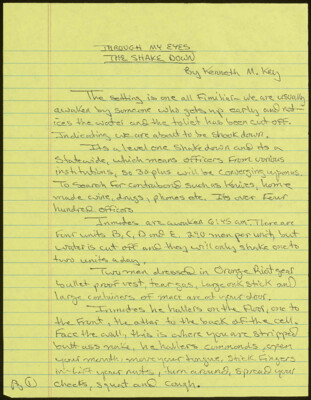 THROUGH MY EYES,
THE SHAKE DOWN
By Kenneth M. Key
The setting is one all Fimiliair we are usually
awaken by someone who gets up early and not-
ices the water and the toliet has been cut off.
Indicating we are about to be shook down.
Its a level one Shake down and its a
Statewide, which means officers from various
institutions, so 30 plus will be converging upon us.
To search for contraband such as knives, home
made wine, drugs, phones etc. Its over four
hundred officers
Inmates are awaken 6:45 am. There are
four units B, C, D and E. 250 men per unit, but
water is cut off and they will only shake one to
two units a day.
Two men dressed in Orange Riot gear
bullet proof vest, tear gas, large oak stick and
large containers of mace are at your door.
Inmates he hallers on the Floor, one to
the front, the other to the back of the cell.
Face the wall, this is where you are stripped
butt ass naked, he hallers commands, open
your mouth, move your tongue. Stick fingers
in - lift your nuts, turn around, spread your
cheeks, squat and cough.